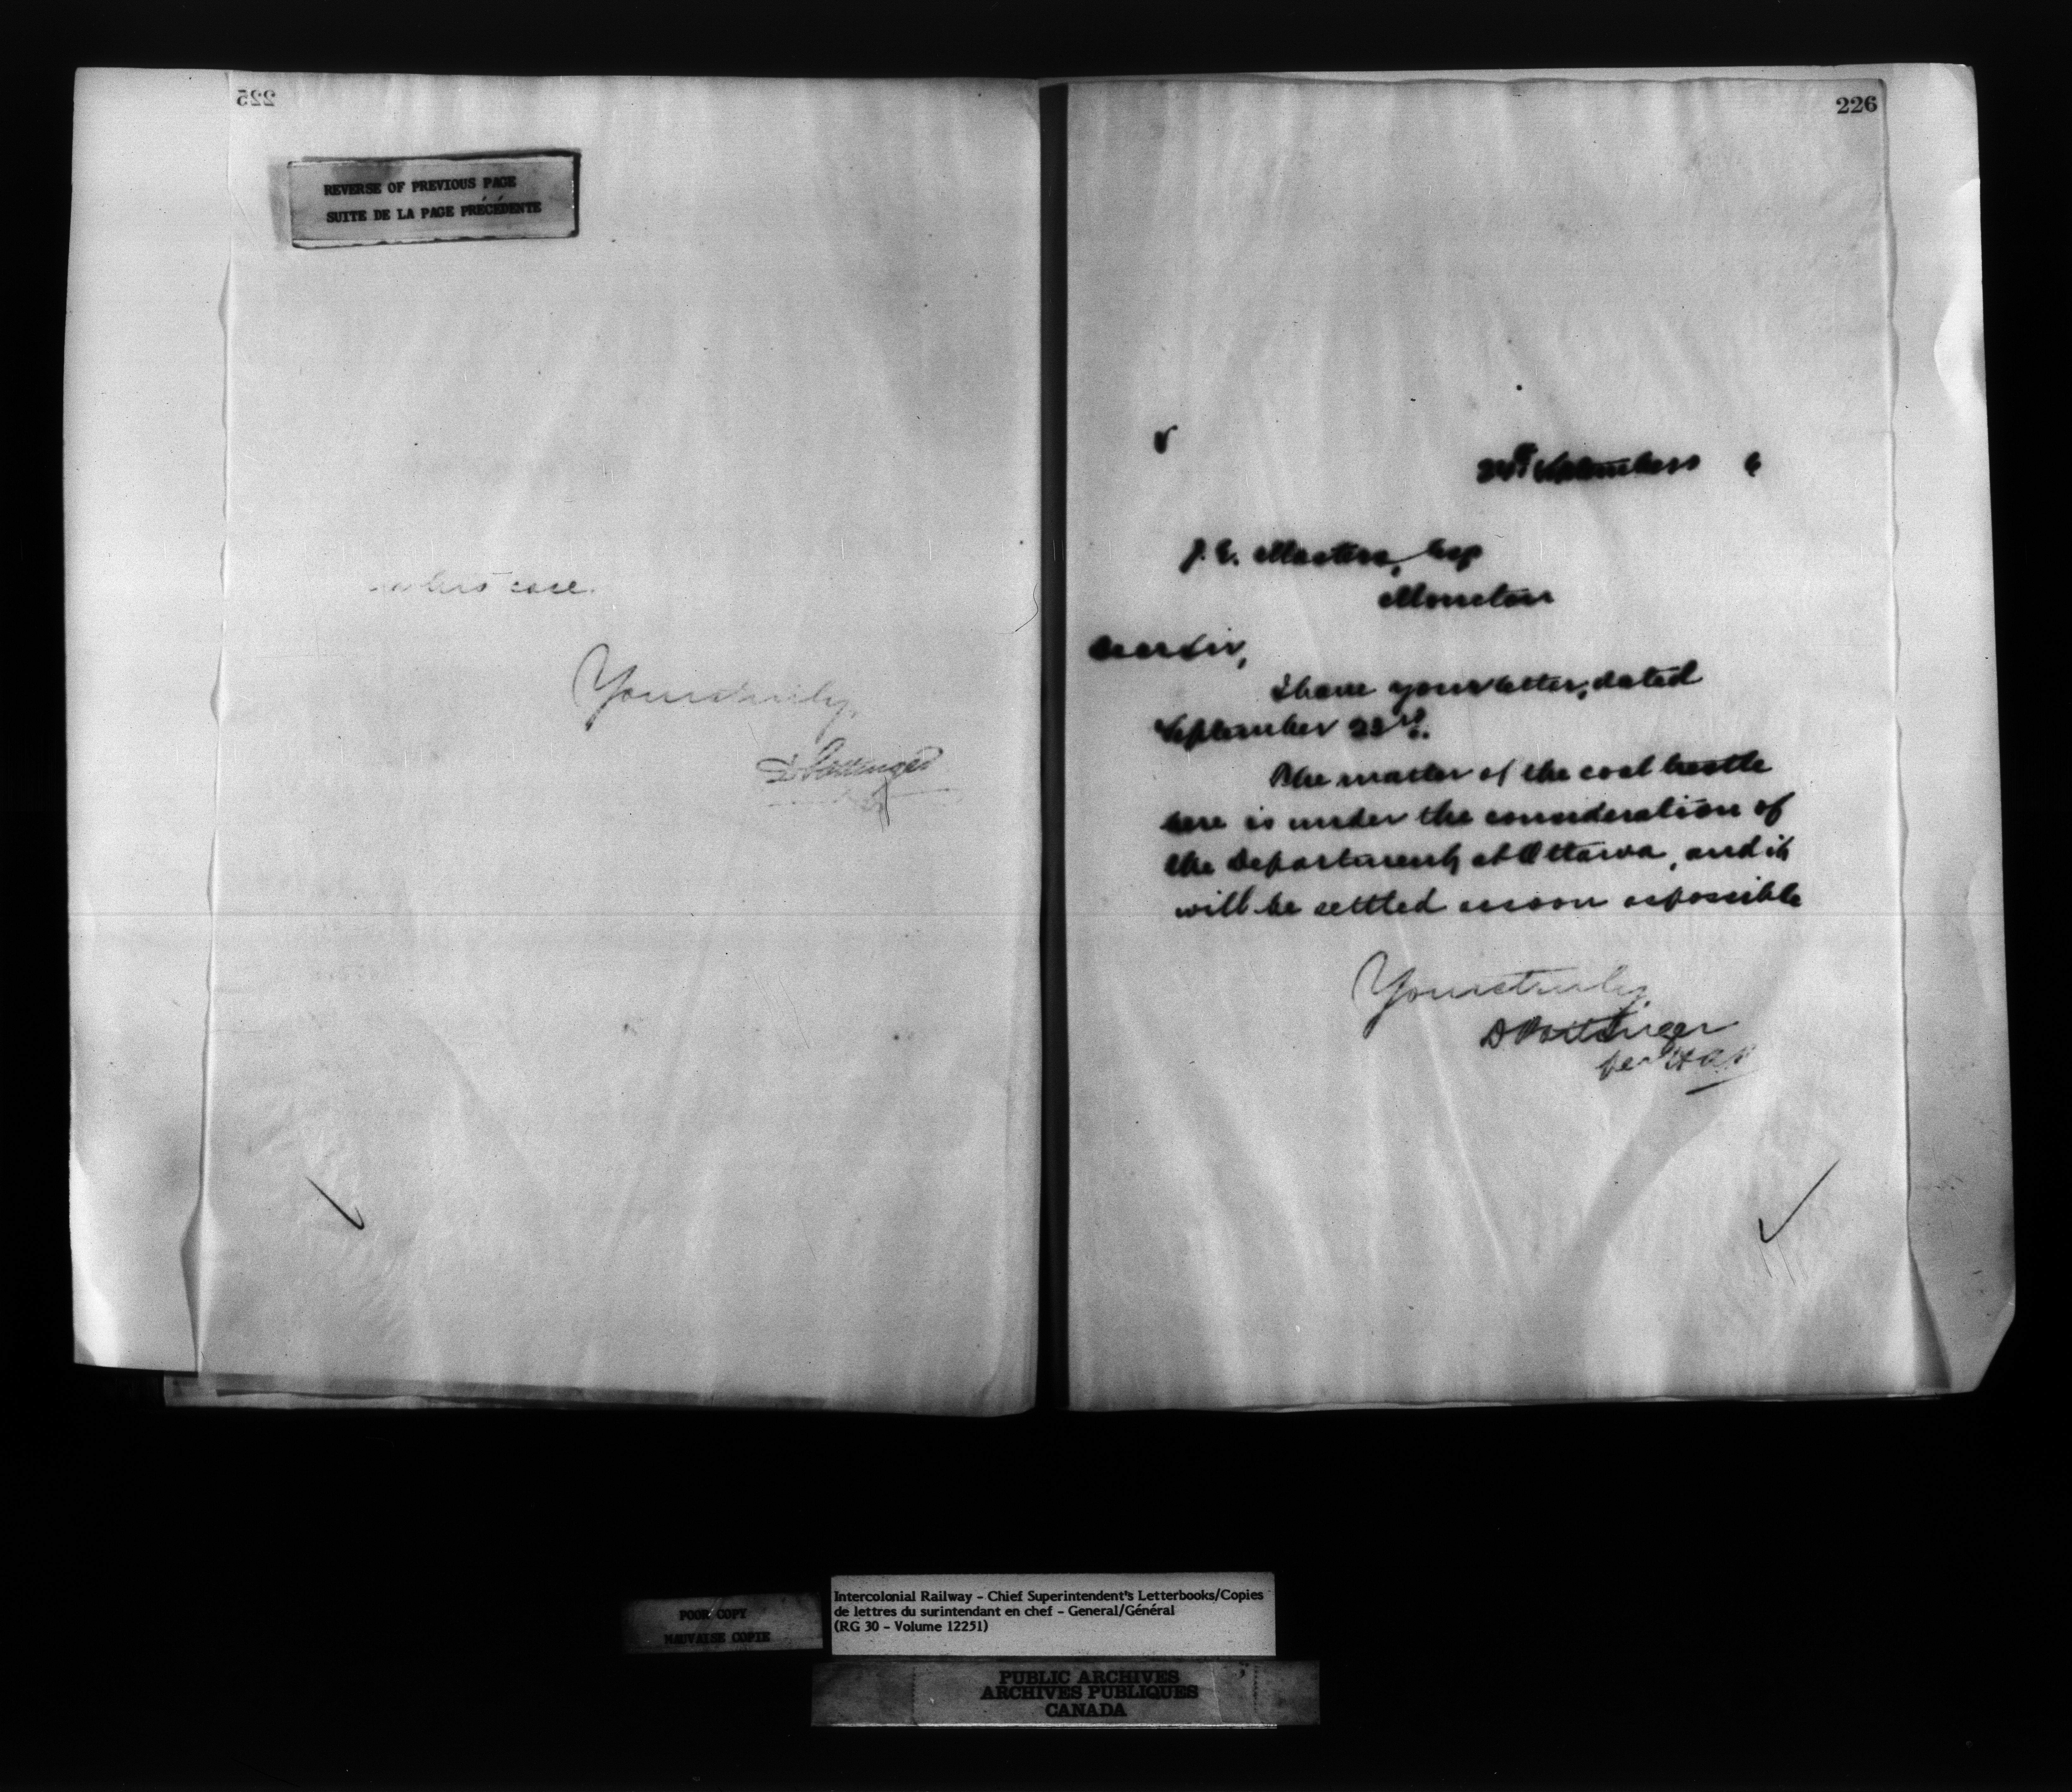 225
REVERSE OF PREVIOUS PAGE
SUITE DE LA PAGE PRÉCÉDENTE
case.
Yours truly,
D Pottinger
226
September 6
J. E. Masters, Esq
Moncton
Dear Sir,
I have your letter, dated
September 23rd.
The matter of the coal trestle
here is under the consideration of
the Department, at Ottawa, and it
will be settled as soon as possible
Yours truly,
D Pottinger
per
POOR COPY
MAUVAISE COPIE
Intercolonial Railway - Chief Superintendent's Letterbooks/Copies
de lettres du surintendant en chef - General/Général
(RG 30 - Volume 12251)
PUBLIC ARCHIVES
ARCHIVES PUBLIQUES
CANADA